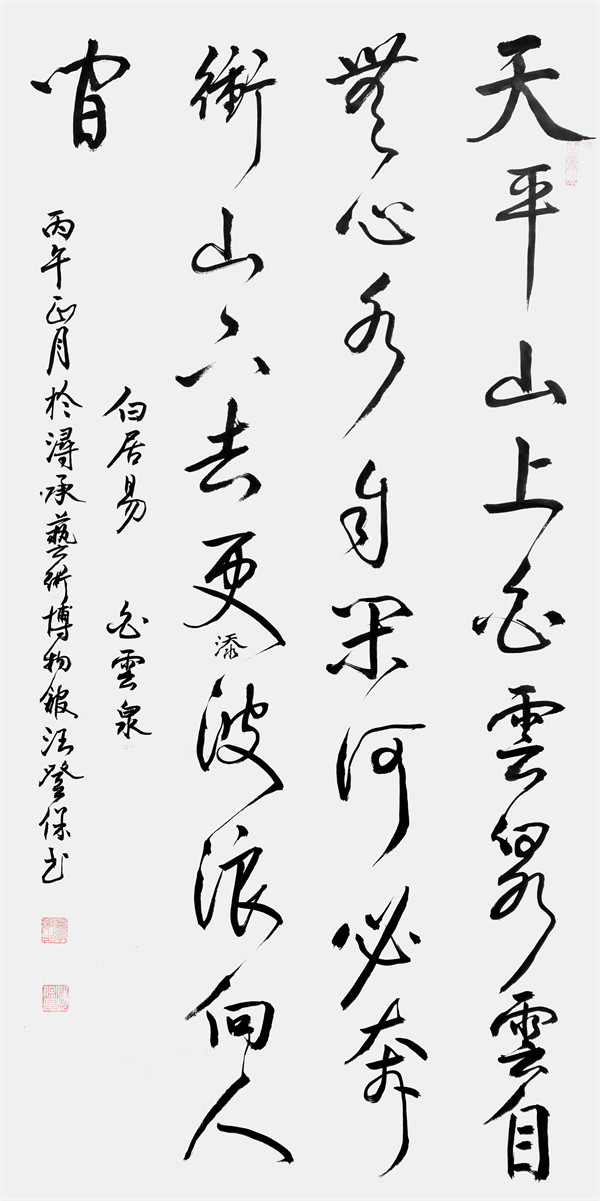 天平山上白雲泉雲自
無心水自閑何必奔
衝山下去更添波浪向人
間
白居易 白雲泉
丙午正月於潯承藝術博物館汪登保書